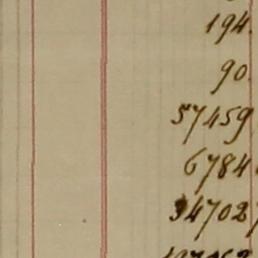 194.
90.
57459
6784
34702